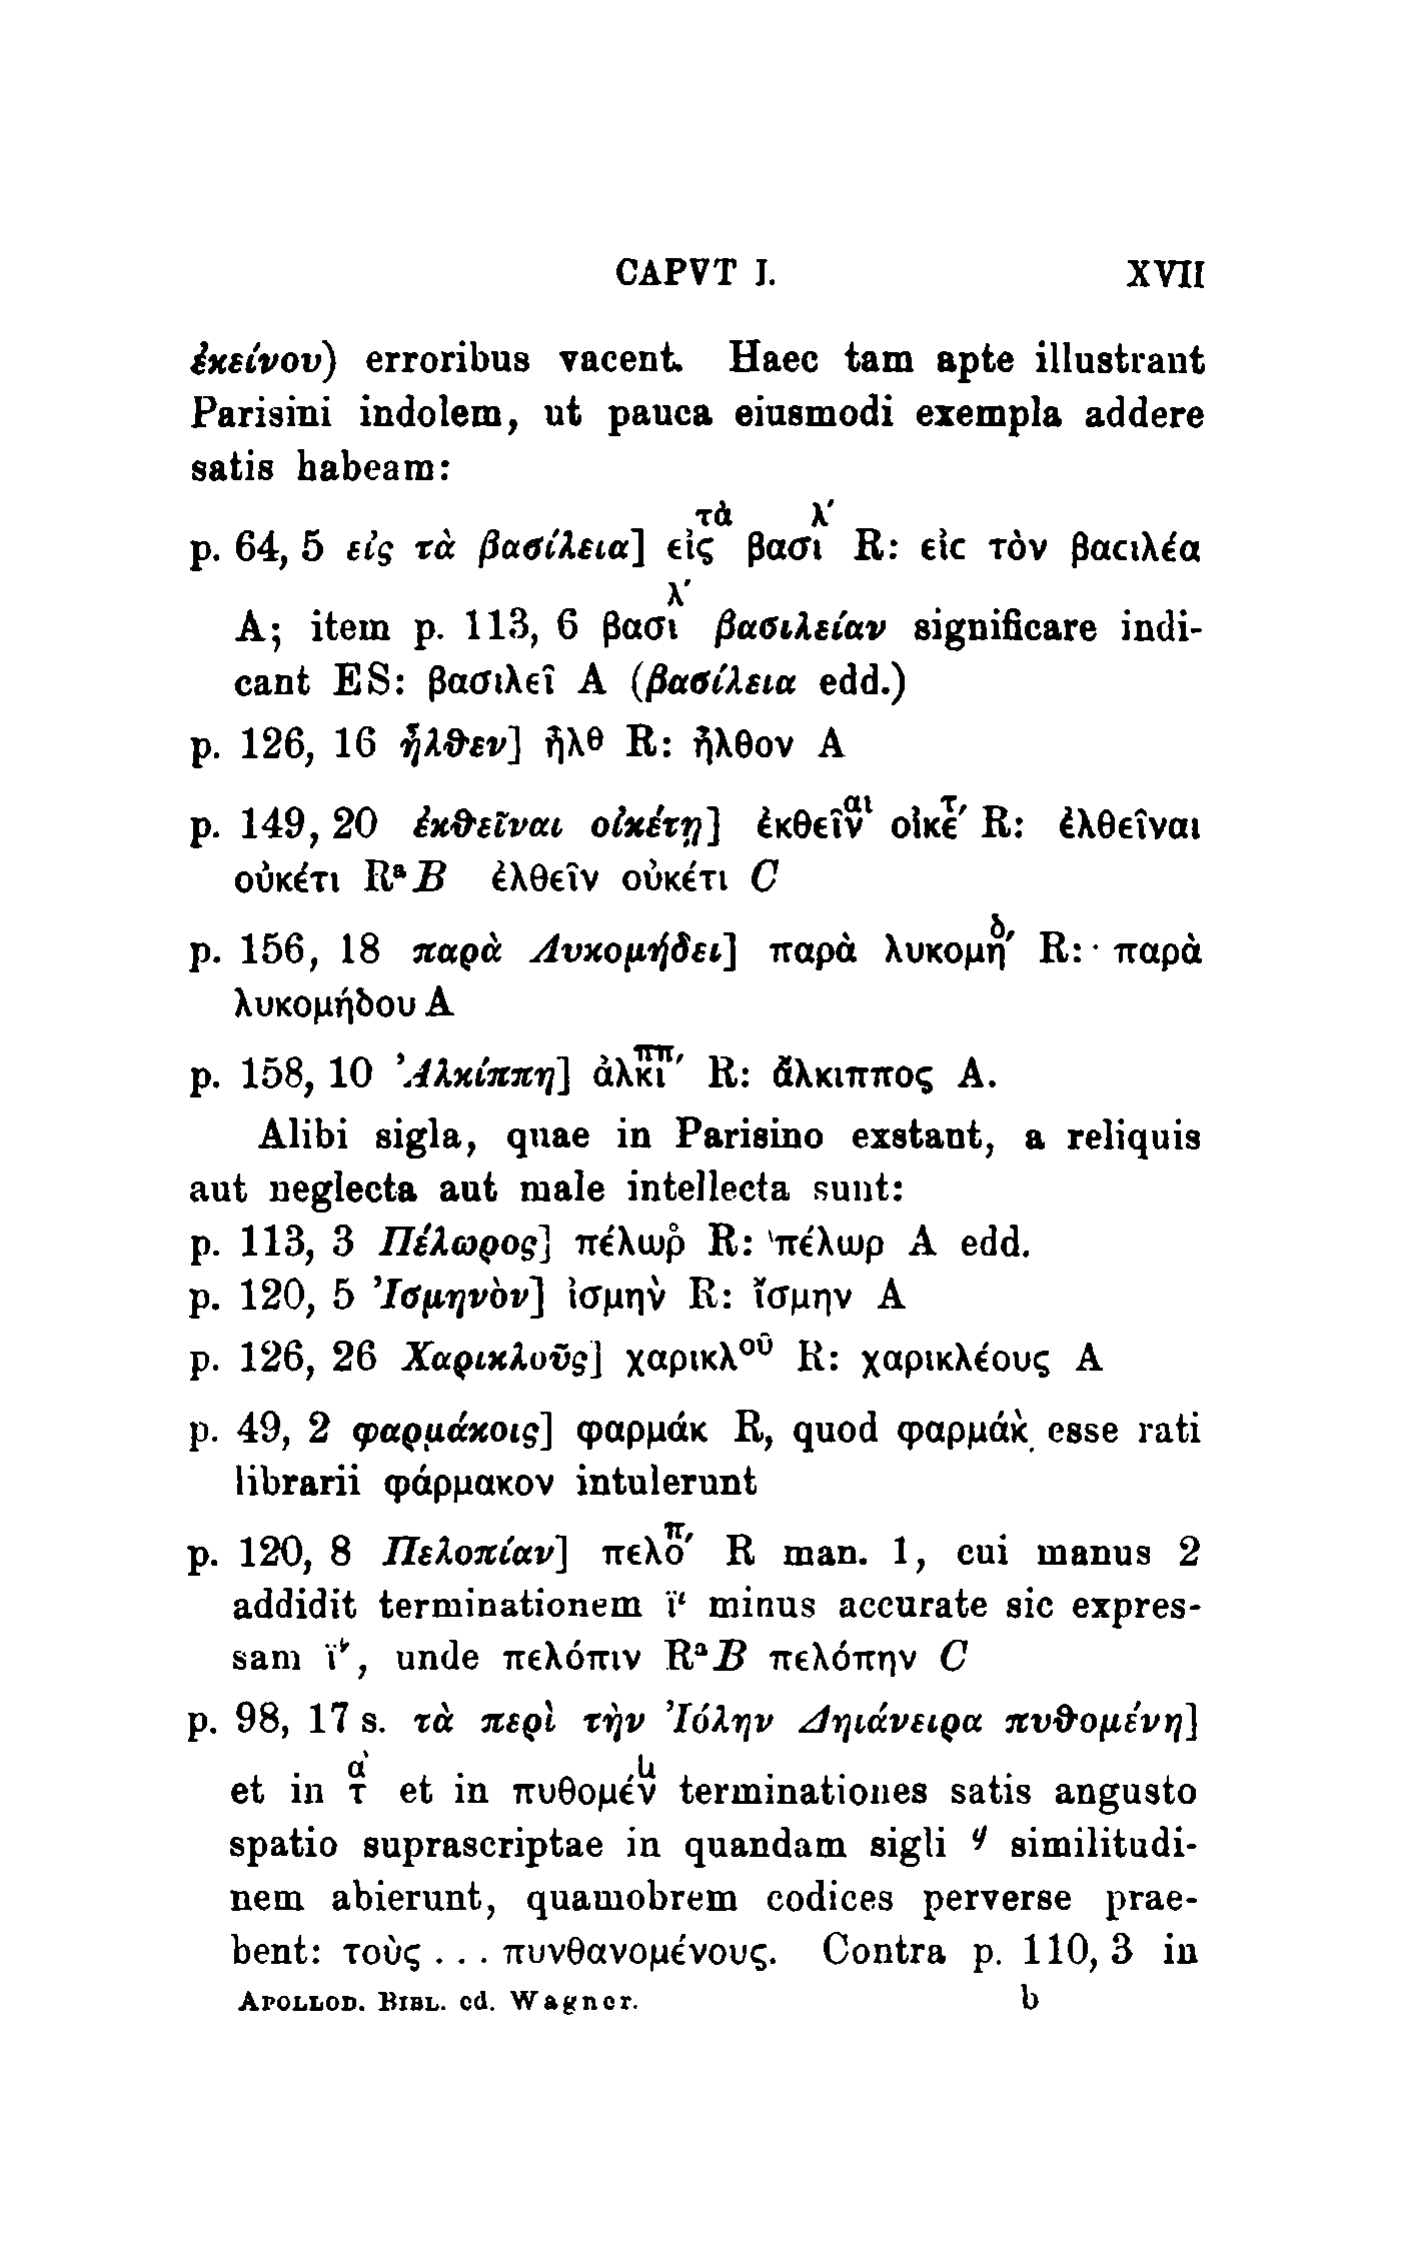 CAPVT I. XVII
ἐκείνου) erroribus vacent. Haec tam apte illustrant
Parisini indolem, ut pauca eiusmodi exempla addere
satis habeam:
τὰ λ′
p. 64, 5 εἰς τὰ βασίλεια] εἰς βασι R: εἰc τὸν βαcιλέα
λ′
A; item p. 113, 6 βασι βασιλείαν significare indi-
cant ES: βασιλεῖ A (βασίλεια edd.)
p. 126, 16 ἦλθεν] ἦλᶿ R: ἦλθον A
αι τ′
p. 149, 20 ἐκθεῖναι οἰκέτῃ] ἐκθεῖν οἰκέ R: ἐλθεῖναι
οὐκέτι RᵃB ἐλθεῖν οὐκέτι C
δ′
p. 156, 18 παρὰ Λυκομήδει] παρὰ λυκομη R: παρὰ
λυκομήδου A
ππ′
p. 158, 10 Ἀλκίππη] ἀλκι R: ἄλκιππος A.
Alibi sigla, quae in Parisino exstant, a reliquis
aut neglecta aut male intellecta sunt:
p. 113, 3 Πέλωρος] πέλωρ̊ R: ‵πέλωρ A edd.
p. 120, 5 Ἰσμηνὸν] ἰσμην̀ R: ἴσμην A
p. 126, 26 Χαρικλοῦς] χαρικλοῦ R: χαρικλέους A
p. 49, 2 φαρμάκοις] φαρμάκ R, quod φαρμάκ̀ esse rati
librarii φάρμακον intulerunt
π′
p. 120, 8 Πελοπίαν] πελο R man. 1, cui manus 2
addidit terminationem ϊʻ minus accurate sic expres-
sam ϊ, unde πελόπιν RᵃB πελόπην C
p. 98, 17 s. τὰ περὶ τὴν Ἰόλην Δηιάνειρα πυθομένη]
ὰ u
et in τ et in πυθομέν terminationes satis angusto
spatio suprascriptae in quandam sigli similitudi-
nem abierunt, quamobrem codices perverse prae-
bent: τοὺς . . . πυνθανομένους. Contra p. 110, 3 in
APOLLOD. BIBL. ed. Wagner. b